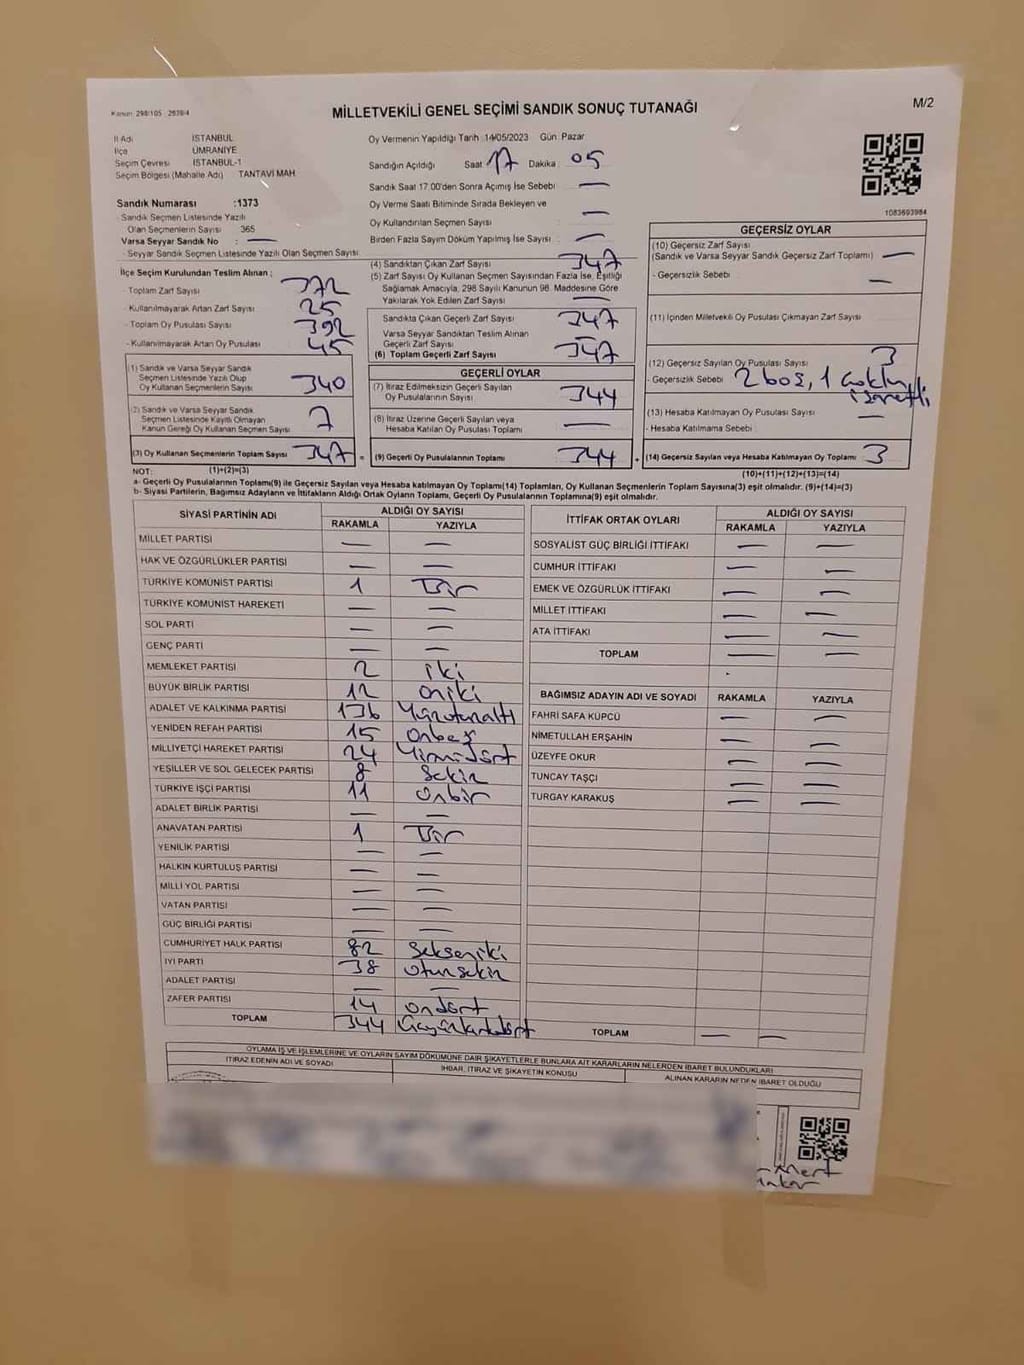 Kanun: 298/105 2839/4
MİLLETVEKİLİ GENEL SEÇİMİ SANDIK SONUÇ TUTANAĞI
M/2
İl Adı İSTANBUL
İlçe ÜMRANİYE
Seçim Çevresi İSTANBUL-1
Seçim Bölgesi (Mahalle Adı) TANTAVİ MAH
Sandık Numarası :1373
- Sandık Seçmen Listesinde Yazılı
Olan Seçmenlerin Sayısı 365
Varsa Seyyar Sandık No : —
- Seyyar Sandık Seçmen Listesinde Yazılı Olan Seçmen Sayısı
Oy Vermenin Yapıldığı Tarih 14/05/2023 Gün Pazar
Sandığın Açıldığı Saat 17 Dakika 05
Sandık Saat 17.00'den Sonra Açımış İse Sebebi —
Oy Verme Saati Bitiminde Sırada Bekleyen ve
Oy Kullandırılan Seçmen Sayısı —
Birden Fazla Sayım Döküm Yapılmış İse Sayısı —
1083693984
İlçe Seçim Kurulundan Teslim Alınan :
- Toplam Zarf Sayısı 372
- Kullanılmayarak Artan Zarf Sayısı 25
- Toplam Oy Pusulası Sayısı 392
- Kullanılmayarak Artan Oy Pusulası 45
(1) Sandık ve Varsa Seyyar Sandık
Seçmen Listesinde Yazılı Olup
Oy Kullanan Seçmenlerin Sayısı 340
(2) Sandık ve Varsa Seyyar Sandık
Seçmen Listesinde Kayıtlı Olmayan
Kanun Gereği Oy Kullanan Seçmen Sayısı 7
(3) Oy Kullanan Seçmenlerin Toplam Sayısı 347
(1)+(2)=(3)
(4) Sandıktan Çıkan Zarf Sayısı 347
(5) Zarf Sayısı Oy Kullanan Seçmen Sayısından Fazla İse, Eşitliği
Sağlamak Amacıyla, 298 Sayılı Kanunun 98. Maddesine Göre
Yakılarak Yok Edilen Zarf Sayısı —
Sandıkta Çıkan Geçerli Zarf Sayısı 347
Varsa Seyyar Sandıktan Teslim Alınan
Geçerli Zarf Sayısı
(6) Toplam Geçerli Zarf Sayısı 347
GEÇERLİ OYLAR
(7) İtiraz Edilmeksizin Geçerli Sayılan
Oy Pusulalarının Sayısı 344
(8) İtiraz Üzerine Geçerli Sayılan veya
Hesaba Katılan Oy Pusulası Toplamı —
(9) Geçerli Oy Pusulalarının Toplamı 344
GEÇERSİZ OYLAR
(10) Geçersiz Zarf Sayısı
(Sandık ve Varsa Seyyar Sandık Geçersiz Zarf Toplamı) —
- Geçersizlik Sebebi —
(11) İçinden Milletvekili Oy Pusulası Çıkmayan Zarf Sayısı
(12) Geçersiz Sayılan Oy Pusulası Sayısı 3
- Geçersizlik Sebebi 2 boş, 1 çoklu
işaretli
(13) Hesaba Katılmayan Oy Pusulası Sayısı —
- Hesaba Katılmama Sebebi
(14) Geçersiz Sayılan veya Hesaba Katılmayan Oy Toplamı 3
(10)+(11)+(12)+(13)=(14)
NOT:
a- Geçerli Oy Pusulalarının Toplamı(9) ile Geçersiz Sayılan veya Hesaba Katılmayan Oy Toplamı(14) Toplamları, Oy Kullanan Seçmenlerin Toplam Sayısına(3) eşit olmalıdır. (9)+(14)=(3)
b- Siyasi Partilerin, Bağımsız Adayların ve İttifakların Aldığı Ortak Oyların Toplamı, Geçerli Oy Pusulalarının Toplamına(9) eşit olmalıdır.
SİYASİ PARTİNİN ADI ALDIĞI OY SAYISI
RAKAMLA YAZIYLA
MİLLET PARTİSİ — —
HAK VE ÖZGÜRLÜKLER PARTİSİ — —
TÜRKİYE KOMÜNİST PARTİSİ 1 Bir
TÜRKİYE KOMÜNİST HAREKETİ — —
SOL PARTİ — —
GENÇ PARTİ — —
MEMLEKET PARTİSİ 2 iki
BÜYÜK BİRLİK PARTİSİ 12 oniki
ADALET VE KALKINMA PARTİSİ 136 Yüzotuzaltı
YENİDEN REFAH PARTİSİ 15 onbeş
MİLLİYETÇİ HAREKET PARTİSİ 24 Yirmidört
YEŞİLLER VE SOL GELECEK PARTİSİ 8 Sekiz
TÜRKİYE İŞÇİ PARTİSİ 11 Onbir
ADALET BİRLİK PARTİSİ — —
ANAVATAN PARTİSİ 1 Bir
YENİLİK PARTİSİ — —
HALKIN KURTULUŞ PARTİSİ — —
MİLLİ YOL PARTİSİ — —
VATAN PARTİSİ — —
GÜÇ BİRLİĞİ PARTİSİ — —
CUMHURİYET HALK PARTİSİ 82 Sekseniki
İYİ PARTİ 38 otuzsekiz
ADALET PARTİSİ — —
ZAFER PARTİSİ 14 ondört
TOPLAM 344 Üçyüzkırkdört
İTTİFAK ORTAK OYLARI ALDIĞI OY SAYISI
RAKAMLA YAZIYLA
SOSYALİST GÜÇ BİRLİĞİ İTTİFAKI — —
CUMHUR İTTİFAKI — —
EMEK VE ÖZGÜRLÜK İTTİFAKI — —
MİLLET İTTİFAKI — —
ATA İTTİFAKI — —
TOPLAM — —
BAĞIMSIZ ADAYIN ADI VE SOYADI RAKAMLA YAZIYLA
FAHRİ SAFA KÜPCÜ — —
NİMETULLAH ERŞAHİN — —
ÜZEYFE OKUR — —
TUNCAY TAŞÇI — —
TURGAY KARAKUŞ — —
TOPLAM — —
OYLAMA İŞ VE İŞLEMLERİNE VE OYLARIN SAYIM DÖKÜMÜNE DAİR ŞİKAYETLERLE BUNLARA AİT KARARLARIN NELERDEN İBARET BULUNDUKLARI
İTİRAZ EDENİN ADI VE SOYADI İHBAR, İTİRAZ VE ŞİKAYETİN KONUSU ALINAN KARARIN NEDEN İBARET OLDUĞU
Mert